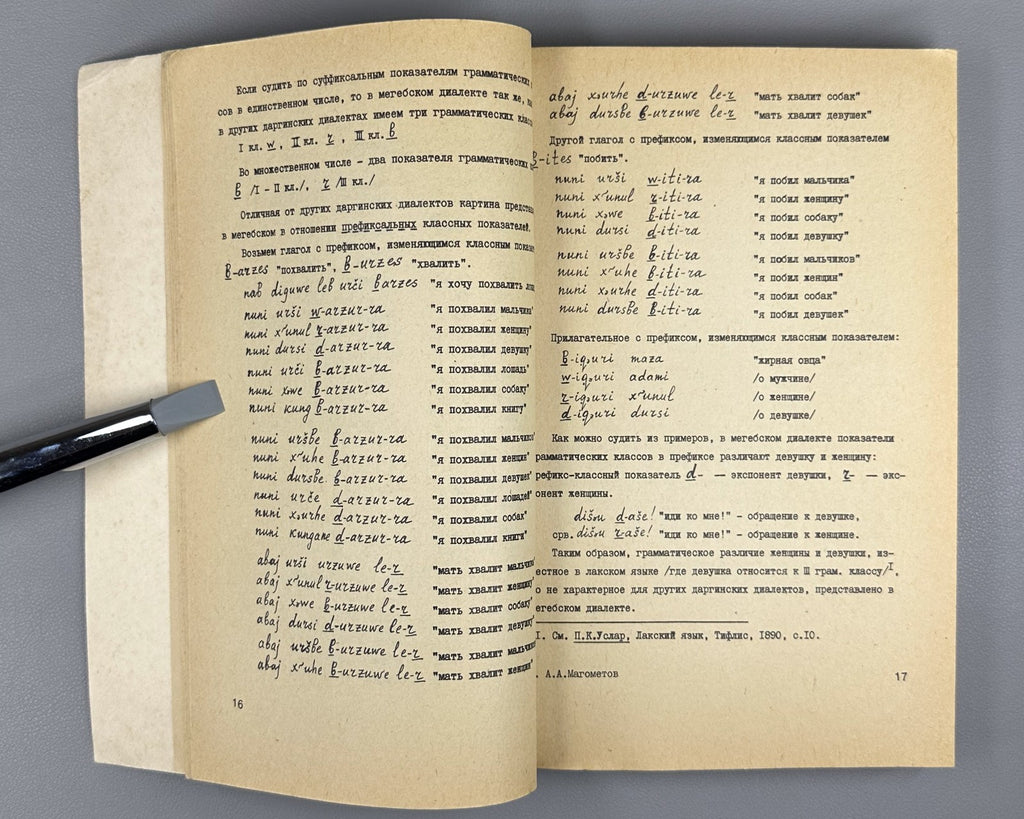 Если судить по суффиксальным показателям грамматических
сов в единственном числе, то в мегебском диалекте так же,
в других даргинских диалектах имеем три грамматических
I кл. w, II кл. r, III кл. b
Во множественном числе – два показателя грамматических
b /I – II кл./, r /III кл./
Отличная от других даргинских диалектов картина
в мегебском в отношении префиксальных классных показателей.
Возьмем глагол с префиксом, изменяющимся классным
b-arzes "похвалить", b-urzes "хвалить".
nab diguwe leb urči barzes "я хочу похвалить
nuni urši w-arzur-ra "я похвалил мальчика"
nuni xʻunul r-arzur-ra "я похвалил женщину"
nuni dursi d-arzur-ra "я похвалил девушку"
nuni urči b-arzur-ra "я похвалил лошадь"
nuni xəwe b-arzur-ra "я похвалил собаку"
nuni kung b-arzur-ra "я похвалил книгу"
nuni uršbe b-arzur-ra "я похвалил мальчиков"
nuni xʻuhe b-arzur-ra "я похвалил женщин"
nuni dursbe b-arzur-ra "я похвалил девушек"
nuni urče d-arzur-ra "я похвалил лошадей"
nuni xəurhe d-arzur-ra "я похвалил собак"
nuni kungane d-arzur-ra "я похвалил книги"
abaj urši urzuwe le-r "мать хвалит мальчика
abaj xʻunul r-urzuwe le-r "мать хвалит женщину
abaj xəwe b-urzuwe le-r "мать хвалит собаку
abaj dursi d-urzuwe le-r "мать хвалит девушку
abaj uršbe b-urzuwe le-r "мать хвалит
abaj xʻuhe b-urzuwe le-r "мать хвалит женщин
16
abaj xəurhe d-urzuwe le-r "мать хвалит собак"
abaj dursbe b-urzuwe le-r "мать хвалит девушек"
Другой глагол с префиксом, изменяющимся классным показателем
b-ites "побить".
nuni urši w-iti-ra "я побил мальчика"
nuni xʻunul r-iti-ra "я побил женщину"
nuni xəwe b-iti-ra "я побил собаку"
nuni dursi d-iti-ra "я побил девушку"
nuni uršbe b-iti-ra "я побил мальчиков"
nuni xʻuhe b-iti-ra "я побил женщин"
nuni xəurhe d-iti-ra "я побил собак"
nuni dursbe b-iti-ra "я побил девушек"
Прилагательное с префиксом, изменяющимся классным показателем:
b-iqəuri maza "жирная овца"
w-iqəuri adami /о мужчине/
r-iqəuri xʻunul /о женщине/
d-iqəuri dursi /о девушке/
Как можно судить из примеров, в мегебском диалекте показатели
рамматических классов в префиксе различают девушку и женщину:
рефикс-классный показатель d- — экспонент девушки, r- — экс-
онент женщины.
dišəu d-aše! "иди ко мне!" – обращение к девушке,
срв. dišəu r-aše! "иди ко мне!" – обращение к женщине.
Таким образом, грамматическое различие женщины и девушки, из-
естное в лакском языке /где девушка относится к III грам. классу/I,
о не характерное для других даргинских диалектов, представлено в
егебском диалекте.
I. См. П.К.Услар, Лакский язык, Тифлис, 1890, с.10.
. А.А.Магометов
17